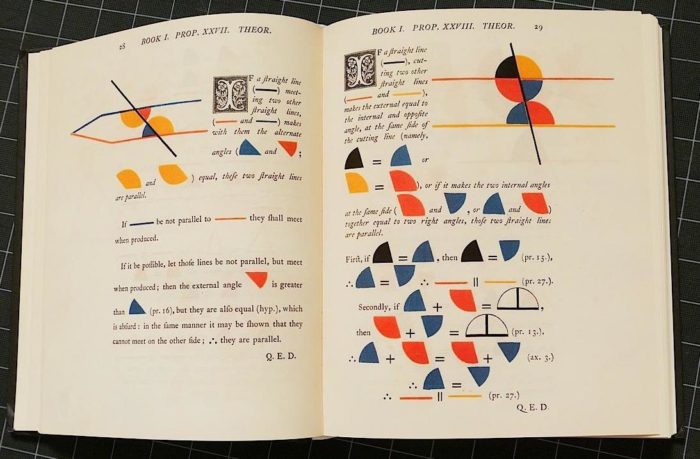 28 BOOK I. PROP. XXVII. THEOR.
IF a ſtraight line
( ) meet-
ing two other
ſtraight lines,
( and ) makes
with them the alternate
angles ( and ;
and ) equal, theſe two ſtraight lines
are parallel.
If be not parallel to they ſhall meet
when produced.
If it be poſſible, let thoſe lines be not parallel, but meet
when produced; then the external angle is greater
than (pr. 16), but they are alſo equal (hyp.), which
is abſurd: in the ſame manner it may be ſhown that they
cannot meet on the other ſide; ∴ they are parallel.
Q. E. D.
BOOK I. PROP. XXVIII. THEOR. 29
IF a ſtraight line
( ), cut-
ting two other
ſtraight lines
( and ),
makes the external equal to
the internal and oppoſite
angle, at the ſame ſide of
the cutting line (namely,
= or
= ), or if it makes the two internal angles
at the ſame ſide ( and , or and )
together equal to two right angles, thoſe two ſtraight lines
are parallel.
Firſt, if = , then = (pr. 15.),
∴ = ∴ || (pr. 27.).
Secondly, if + = ,
then + = (pr. 13.),
∴ + = + (ax. 3.)
∴ =
∴ || (pr. 27.)
Q. E. D